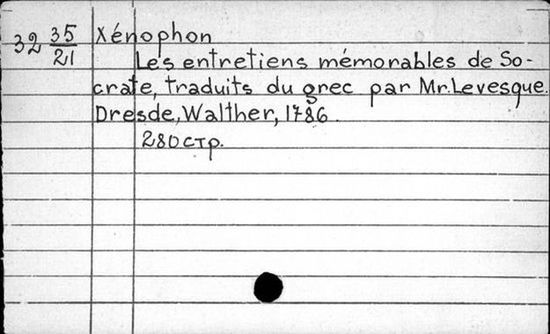 32 35/21 Xénophon
Les entretiens mémorables de So-
crate, traduits du grec par Mr. Levesque.
Dresde, Walther, 1786.
280 стр.